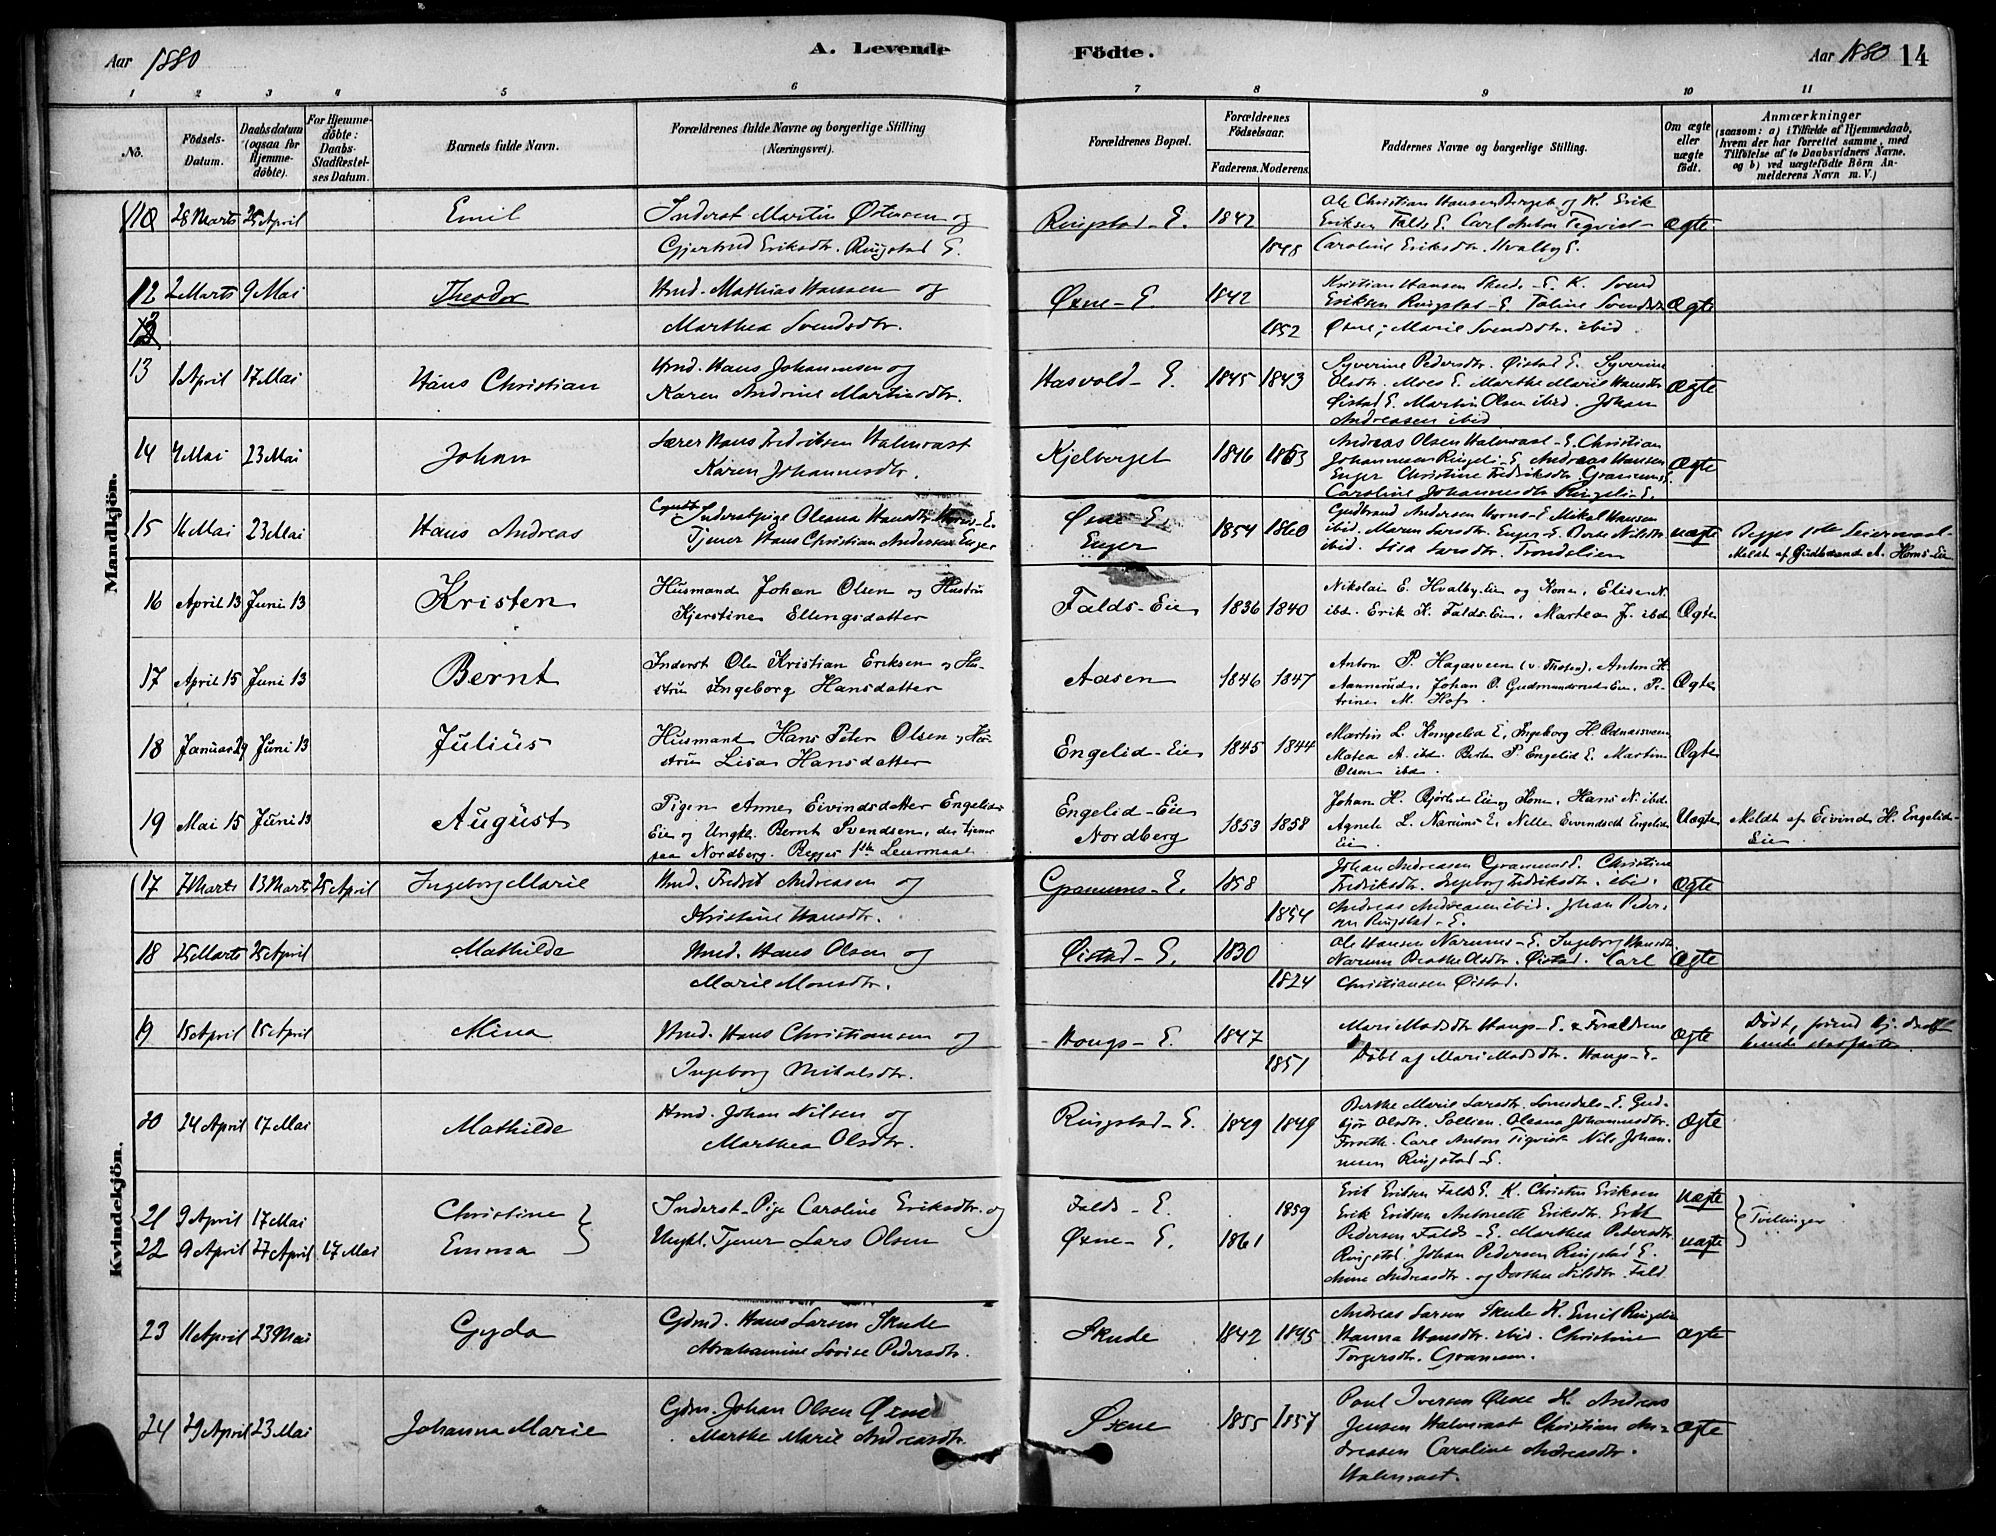 Aar 1880
A. Levende
Födte.
Aar 1880 14
1 2 3 4 5 6 7 8 9 10 11
No.
Födsels-Datum.
Daabsdatum (ogsaa for Hjemme-döbte).
For Hjemme-döbte: Daabs-Stadfæstel-ses Datum.
Barnets fulde Navn.
Forældrenes fulde Navne og borgerlige Stilling (Næringsvei).
Forældrenes Bopæl.
Forældrenes Födselsaar.
Faderens. Moderens.
Faddernes Navne og borgerlige Stilling.
Om ægte eller uægte födt.
Anmærkninger
(saasom: a) i Tilfælde af Hjemmedaab, hvem der har forrettet samme, med Tilföielse af to Daabsvidners Navne. og b) ved uægtefödte Börn An-melderens Navn m. V.)
Mandkjön.
28 Marts 25 April Emil Inderst Martin Østensen og Ringstad-E. 1842 Ole Christian Hansen Berget og K. Erik
Gjertrud Eriksdtr. Ringstad E. 1848 Eriksen Falds E. Carl Anton Teqvist Ægte
Caroline Eriksdtr. Hvalby E.
12 2 Marts 9 Mai Theodor Hmd. Mathias Hansen og Øxne-E 1842 Kristian Hansen Skude-E. K. Svend
Marthea Svendsdtr. 1852 Eriksen Ringstad-E. Ægte
Øxne; Marie Svendsdtr. ibid.
13 1 April 17 Mai Hans Christian Hmd. Hans Johannesen og Hasvold-E. 1845 1843 Syverine Pedersdtr. Øistad E. Syverine
Karen Andrine Martinsdtr. Olsdtr. Moes E. Marthe Marie Hansdtr. Ægte
Øistad E. Martin Olsen ibid. Johan
Andreasen ibid
14 4 Mai 23 Mai Johan Lærer Hans Fredriksen Halmrast Kjelberget 1846 Andreas Olsen Halmrast-E. Christian
Karen Johannesdtr. Johannesen Ringeli-E. Andreas Hansen Ægte
Enger Christine Fredriksdtr. Granums E.
Caroline Johannesdtr. Ringeli E.
15 16 Mai 23 Mai Hans Andreas Inderstpige Oleana Hansdtr. Øxne E. 1854 1860 Gudbrand Andersen Horns-E Mikal Hansen
Tjener Hans Christian Andersen Enger Enger ibid. Maren Larsdtr. Enger-E. Berte Nilsdtr. uægte Begges 1ste Leiermaal-
ibid. Lisa Larsdtr. Trondelien Meldt af Gudbrand A. Horns-Eie
16 April 13 Juni 13 Kristen Husmand Johan Olsen og Hustru Falds-Eie 1836 1840 Nikolai E. Hvalby-Eie og Kone, Elise N.
Kjerstine Ellingsdatter ibd. Erik K. Falds-Eie, Martea J. ibd. Ægte
17 April 15 Juni 13 Bernt Inderst Ole Kristian Eriksen og Hu- Aasen 1846 1847 Anton P. Hagasveen (v. Thoten), Anton H.
stru Ingeborg Hansdatter Aannerud, Johan O. Gudmundsrud Eie, Pe- Ægte
trine M. Hof.
18 Januar 29 Juni 13 Julius Husmand Hans Peter Olsen og Hu- Engelid-Eie 1845 1844 Martin L. Kompelid E, Ingeborg H. Odnæsveen
stru Lisa Hansdatter Matea A. ibd. Berte P. Engelid E. Martin Ægte
Olsen ibd.
19 Mai 15 Juni 13 August Pigen Anne Eivindsdatter Engelids Engelid-Eie 1853 1858 Johan H. Bjørlid Eie og Kone, Hans N. ibd.
Eie og Ungkl. Bernt Svendsen, der tjener Nordberg Agnete L. Narums E, Nille Eivendsdtt Engelid Uægte Meldt af Eivind H. Engelid-
paa Nordberg. Begges 1ste Leiermaal. Eie. Eie.
Kvindekjön.
17 7 Marts 13 Marts 25 April Ingeborg Marie Hmd. Fredrik Andreasen og Granums-E. 1858 Johan Andreasen Granums E. Christine
Kristine Hansdtr. 1854 Fredriksdtr. Ingeborg Fredriksdtr. ibid. Ægte
Andreas Andreasen ibid. Johan Peder-
sen Ringstad-E.
18 25 Marts 25 April Mathilde Hmd. Hans Olsen og Øistad-E. 1830 Ole Hansen Narums-E. Ingeborg Hansdtr.
Marie Monsdtr. 1824 Narum Berthe Olsdtr. Øistad. Carl Ægte
Christiansen Øistad.
19 15 April 15 April Mina Hmd. Hans Christiansen og Haugs-E. 1847 Mari Madsdtr Haugs-E. & Forældrene Ægte Dødt, førend
Ingeborg Mikalsdtr. 1851 Døbt af Mari Madsdtr. Haugs-E.
20 24 April 17 Mai Mathilde Hmd. Johan Nilsen og Ringstad-E. 1849 1849 Berthe Marie Larsdtr. E. Gud-
Marthea Olsdtr. bjør Olsdtr. Sollien. Oleana Johannesdtr. Ægte
Carl Anton Teqvist Nils Johan-
nesen Ringstad-E.
21 9 April 17 Mai Christine Inderst-Pige Caroline Eriksdtr. og Falds-E. 1859 Erik Eriksen Falds E. K. Christen Eriksen uægte
22 9 April 27 April 17 Mai Emma Ungkl. Tjener Lars Olsen Øxne-E. 1861 Erik Eriksen Antonette Eriksdtr. Erik uægte Tvillinger
Pedersen Falds-E. Marthea Pedersdtr.
Ringstad. Johan Pedersen Ringstad E.
Anne Andreasdtr. og Dorthea Nilsdtr. Fald.
23 11 April 23 Mai Gyda Gdmd. Hans Larsen Skude Skude 1842 1845 Andreas Larsen Skude K. Emil Ringelien
Abrahamine Lovise Pedersdtr. Hanna Hansdtr. ibid. Christine Ægte
Torgersdtr. Granum.
24 29 April 23 Mai Johanna Marie Gdm. Johan Olsen Øxne Øxne 1855 1857 Paul Iversen Øxne K. Andreas
Marthe Marie Andreasdtr. Jensen Halmrast Christian An- Ægte
dreasen Caroline Andreasdtr.
Halmrast.